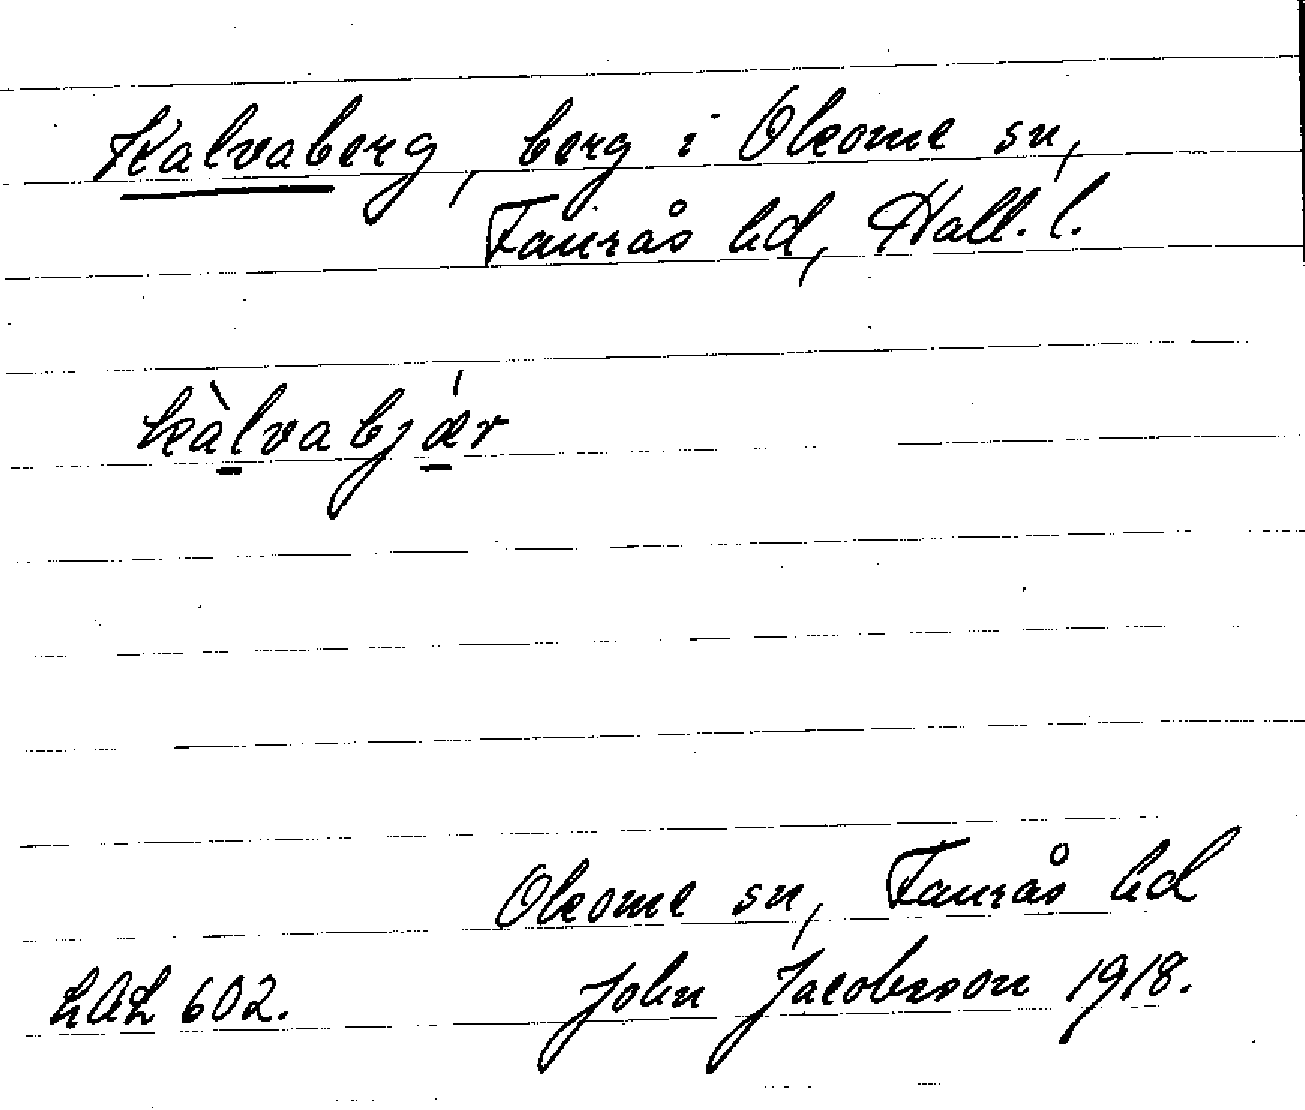 Kalvaberg, berg i Okome sn,
Faurås hd, Hall. l.
kàlvabjǽr
Okome sn, Faurås hd
LAL 602. John Jacobsson 1918.